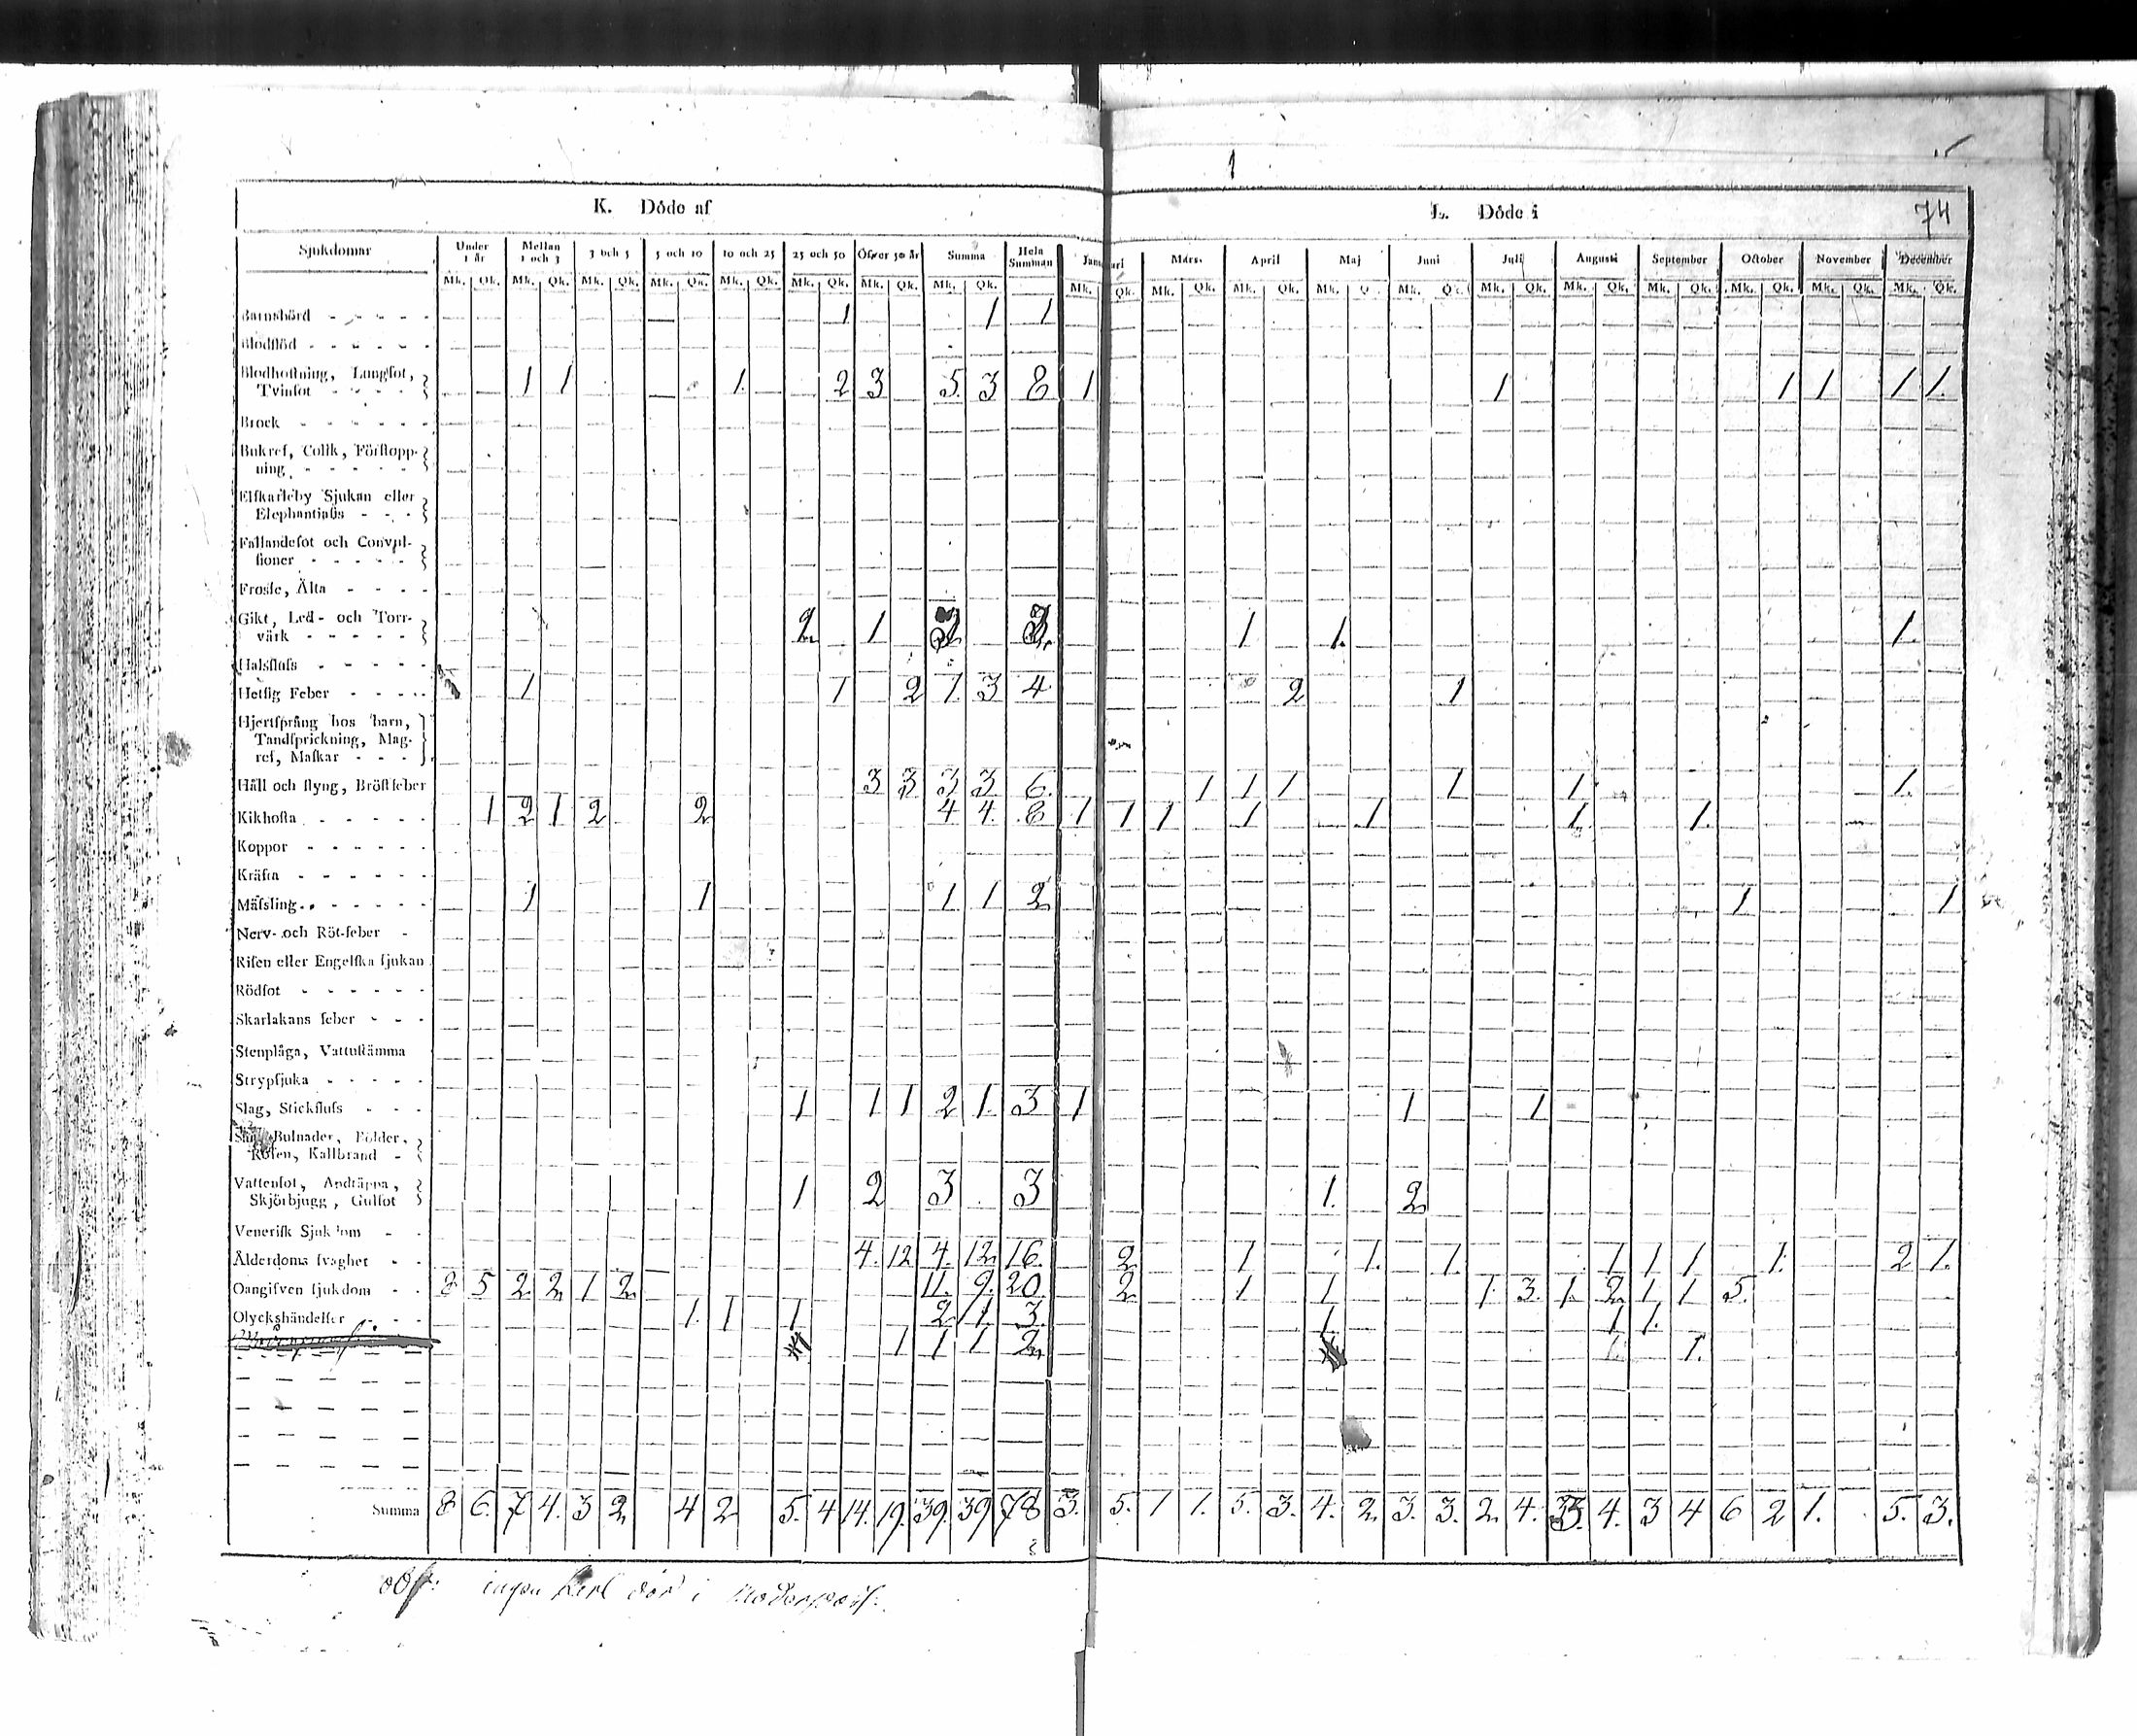 1
K. Döde af
L. Döde i
74
Sjukdomar Under 1 år Mellan 1 och 3 3 och 5 5 och 10 10 och 25 25 och 50 Öfver 50 år Summa Hela Summan Januari Mars. April Maj Juni Juli Augusti September October November December
Mk. Qk. Mk. Qk. Mk. Qk. Mk. Qk. Mk. Qk. Mk. Qk. Mk. Qk. Mk. Qk. Mk. Qk. Mk. Qk. Mk. Qk. Mk. Q. Mk. Qk. Mk. Qk. Mk. Qk. Mk. Qk. Mk. Qk. Mk. Qk. Mk. Qk.
Barnsbörd - - - - - 1 1 1
Blodflöd - - - - - -
Blodhostning, Lungsot,
Tvinsot - - - - 1 1 1. 2 3 5. 3 8 1 1 1 1 1 1.
Brock - - - - - -
Bukref, Collk, Förstopp-
ning - - - - -
Elfkarleby Sjukan eller
Elephantiasis - - -
Fallandesot och Convul-
sioner - - - - -
Frossa, Älta - - - -
Gikt, Led- och Torr-
värk - - - - - 2. 1 3. 1 1. 1.
Halsfluss - - - - -
Hetsig Feber - - - - 1 1 2 1. 3 4 2 1
Hjertsprång hos barn,
Tandsprickning, Mag-
ref, Maskar - - -
Håll och styng, Bröstfeber 3 3 3 3. 6. 1 1 1 1 1 1.
Kikhosta - - - - - 1 2 1 2 2 4 4. 8 1 1 1 1 1 1. 1.
Koppor - - - - - -
Kräfta - - - - - -
Mässling - - - - - 1 1 1 1 2 1 1
Nerv- och Röt-feber -
Risen eller Engelska sjukan
Rödsot - - - - - -
Skarlakans feber - - -
Stenplåga, Vattustämma
Strypsjuka - - - - -
Slag, Stickfluss - - - 1 1 1 2 1. 3 1 1 1
Bulnader, Bölder,
Rosen, Kallbrand -
Vattensot, Andtäppa,
Skjörbjugg, Gulsot 1 2 3 3 1. 2
Venerisk Sjukdom - -
Ålderdoms svaghet - - 4. 12 4. 12 16. 2 1 1. 1. 1 1 1 1. 2 1.
Oangifven sjukdom - - 8 5 2 2 1 2 11. 9. 20. 2 1 1 1. 3. 1. 2 1 1 5.
Olyckshändelser - - - 1. 1 1 2 1. 3. 1 1 1.
1 1 1 2 1.
Summa 8 6. 7 4. 3 2 4 2 5. 4 14. 19. 39. 39 78 3. 5. 1 1. 5. 3. 4. 2. 3. 3. 2. 4. 3. 4. 3 4 6 2 1. 5. 3.
ingen Karl död i